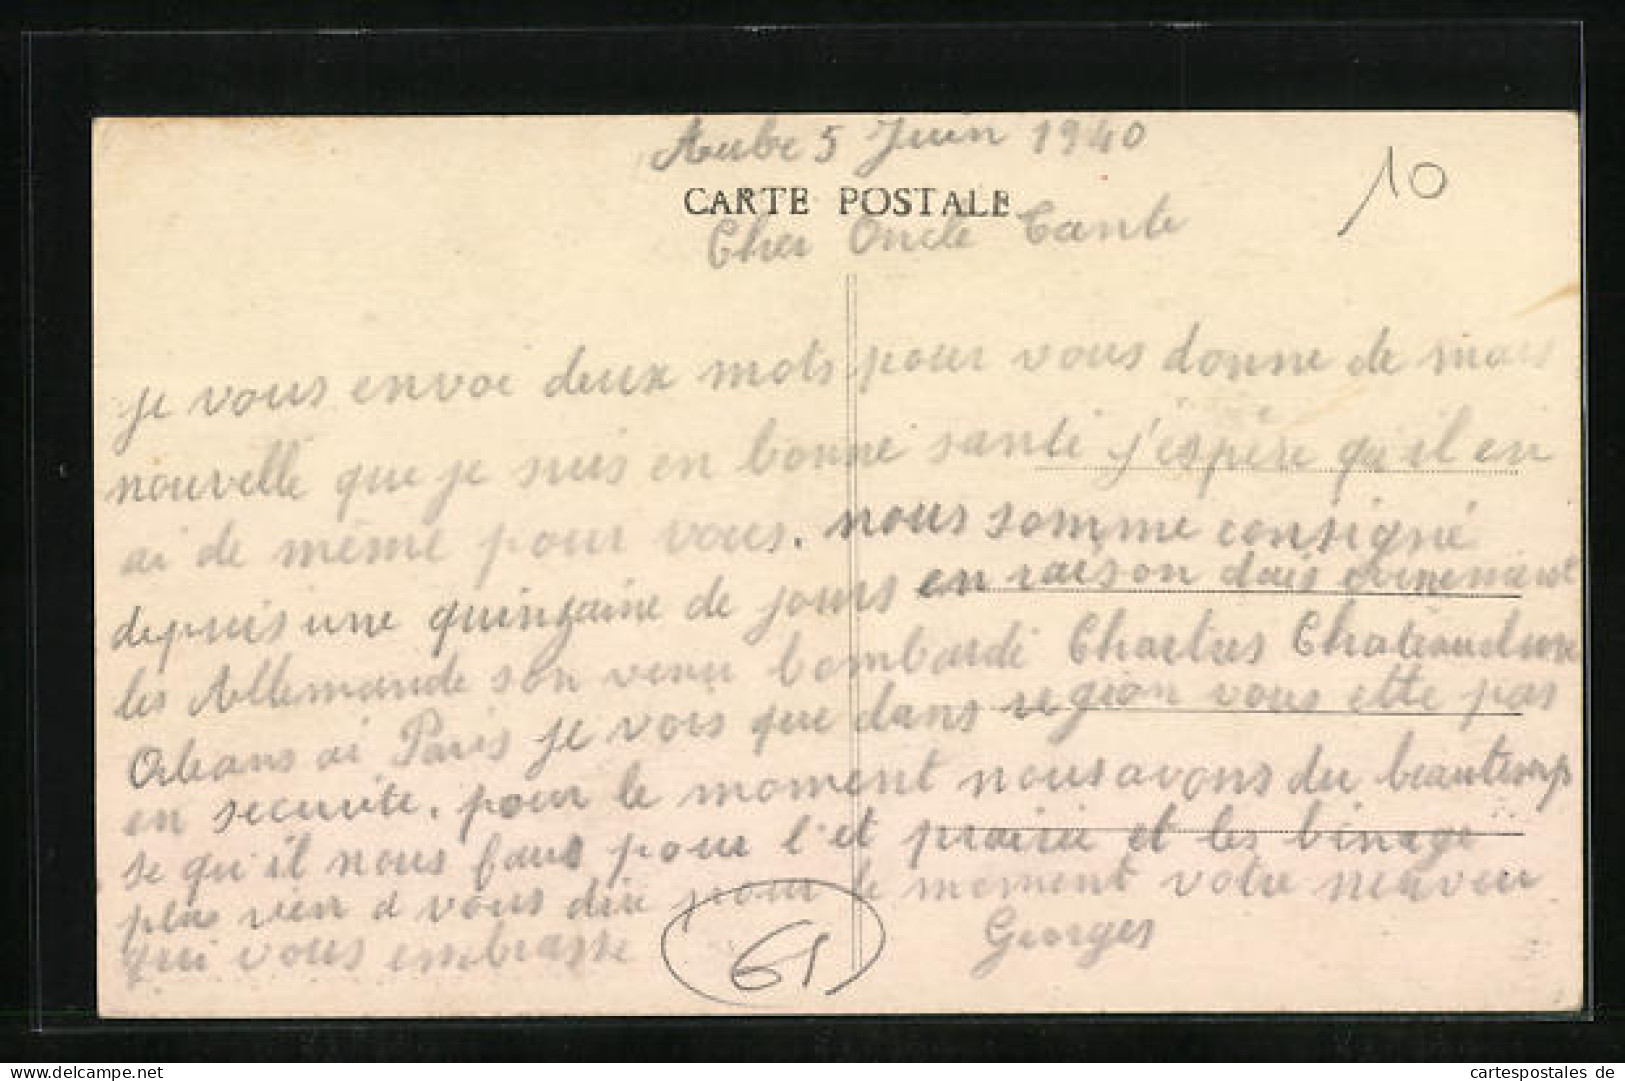 Aube 5 Juin 1940
10
CARTE POSTALE
Cher Oncle Tante
je vous envoe deux mots pour vous donne de mais
nouvelle que je suis en bonne santé j'espère qu'il en
ai de même pour vous. nous somme consigné
depuis une quinzaine de jours en raison dais évinemant
les Allemande son venu bombardé Chartres Chateaudun
Orleans ai Paris je vois que dans region vous ette pas
en securite. pour le moment nous avons du beautemp
se qu'il nous faus pour l'et prairie et les binage
plus rien a vous dire pour le moment votre neuveu
qui vous embrasse Georges
61
www.cartespostales.de
cartespostales de